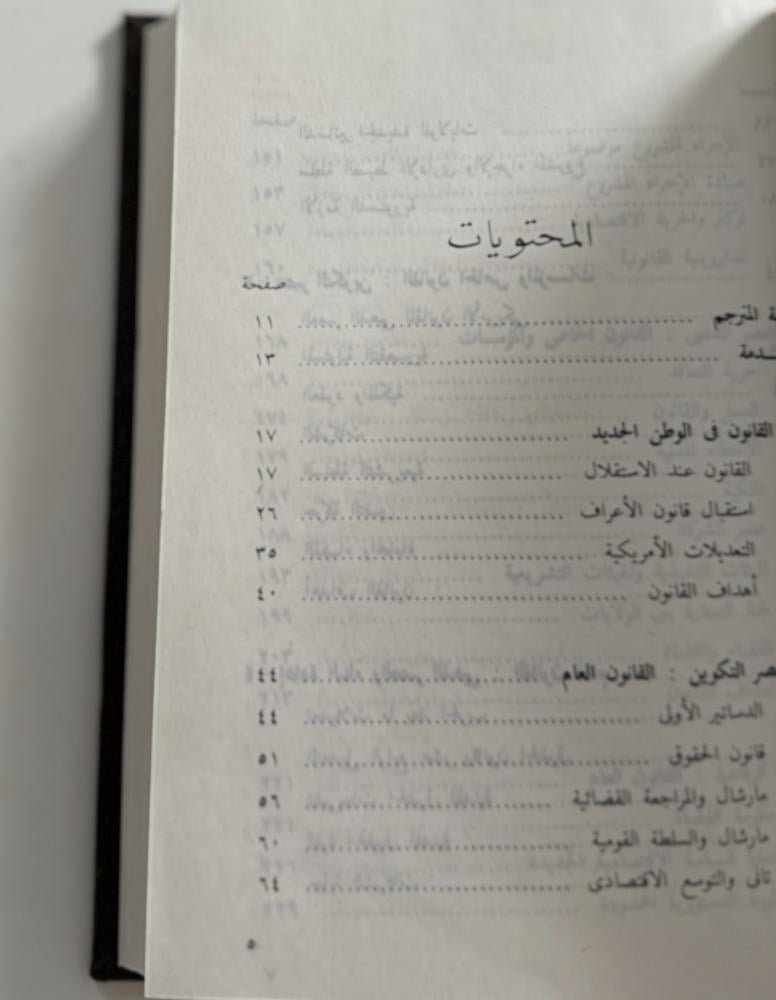 المحتويات
صفحة
المترجم ........ ١١
........ ١٣
القانون فى الوطن الجديد ........ ١٧
القانون عند الاستقلال ........ ١٧
استقبال قانون الأعراف ........ ٢٦
التعديلات الأمريكية ........ ٣٥
أهداف القانون ........ ٤٠
التكوين : القانون العام ........ ٤٤
الدساتير الأولى ........ ٤٤
قانون الحقوق ........ ٥١
مارشال والمراجعة القضائية ........ ٥٦
مارشال والسلطة القومية ........ ٦٠
تانى والتوسع الاقتصادى ........ ٦٤
٥